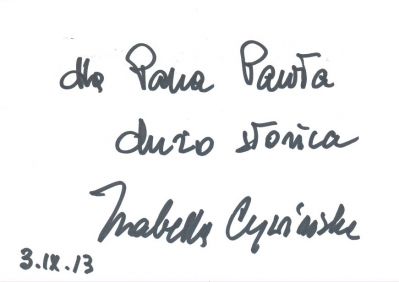 dla Pana Pawła
dużo słońca
Izabella Cywińska
3.IX.13